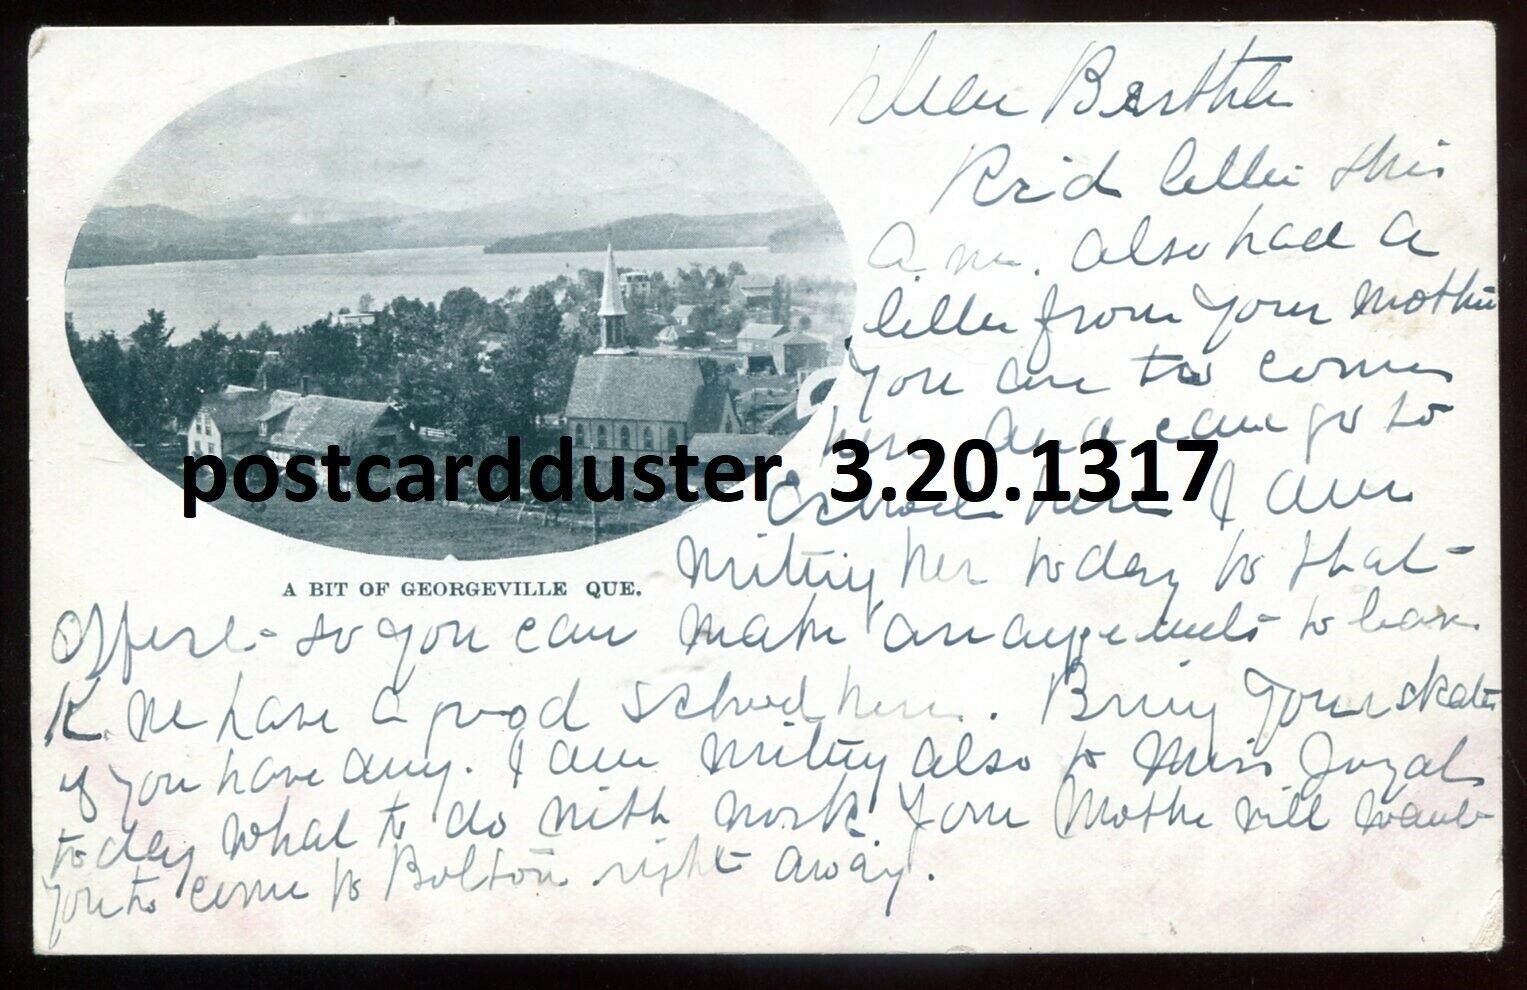 Dear Bertha
Rec'd letter this
a m. also had a
letter from your Mother
you are to come
here and can go to
School here I am
writing her today to that
A BIT OF GEORGEVILLE QUE.
postcardduster 3.20.1317
Effect - so you can make arrangements to leave
K. We have a good School here. Bring your skates
if you have any. I am writing also to Miss
today what to do with work your Mother will want
you to come to Bolton right away.